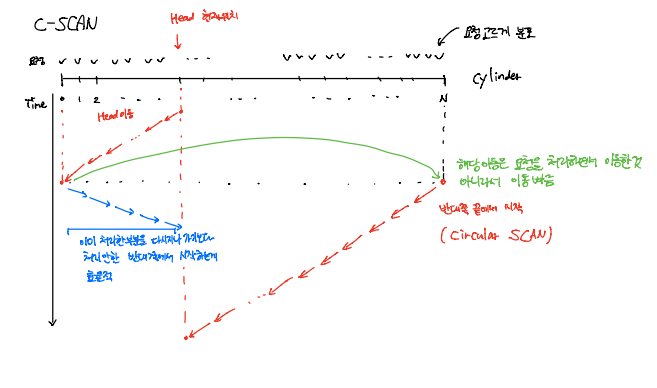 C-SCAN
Head 현재위치
요청고르게 분포
요청
cylinder
Time
0 1 2
N
Head이동
해당이동은 요청을 처리하면서 이동한것
아니라서 이동빠름
반대쪽 끝에서 시작
(Circular SCAN)
이미 처리한부분을 다시지나가기보다
처리안한 반대쪽에서 시작하는게
효율적